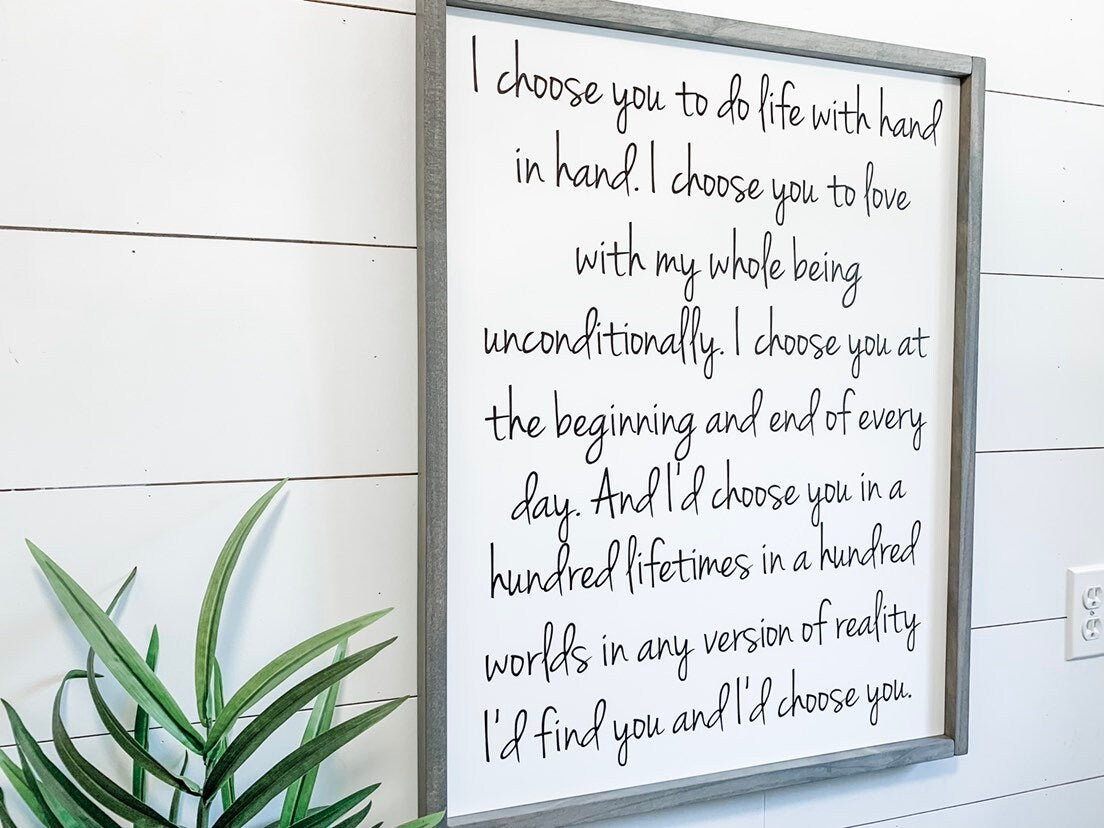 I choose you to do life with hand
in hand. I choose you to love
with my whole being
unconditionally. I choose you at
the beginning and end of every
day. And I'd choose you in a
hundred lifetimes in a hundred
worlds in any version of reality
I'd find you and I'd choose you.